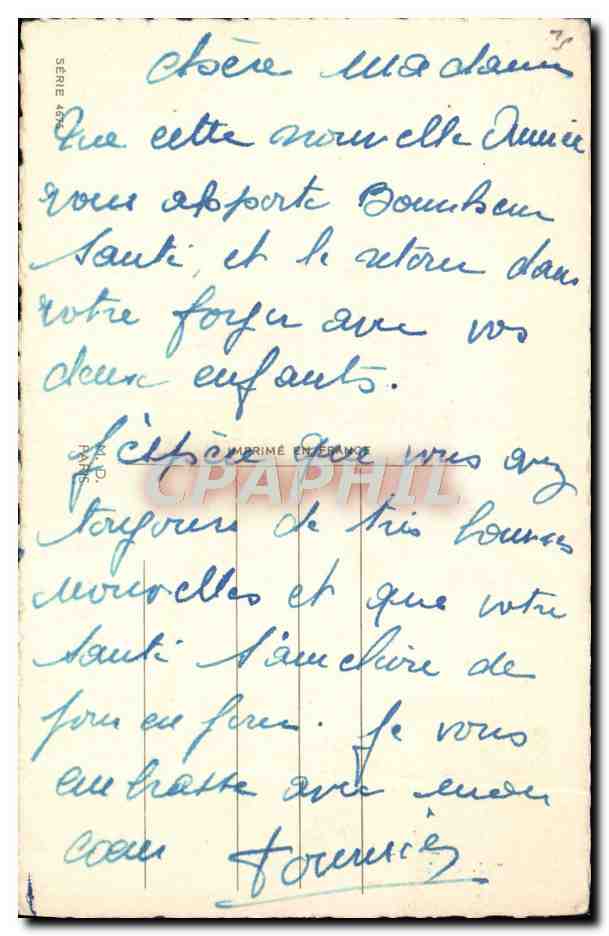 Chère Madame
Que cette nouvelle Année
vous apporte Bonheur
Santé, et le retour dans
votre foyer avec vos
deux enfants.
IMPRIMÉ EN FRANCE
J'espère que vous avez
CPAPHIL
toujours de très bonnes
nouvelles et que votre
santé s'améliore de
jour en jour. Je vous
embrasse avec mon
coeur Fournier
SÉRIE
M. D.
PARIS